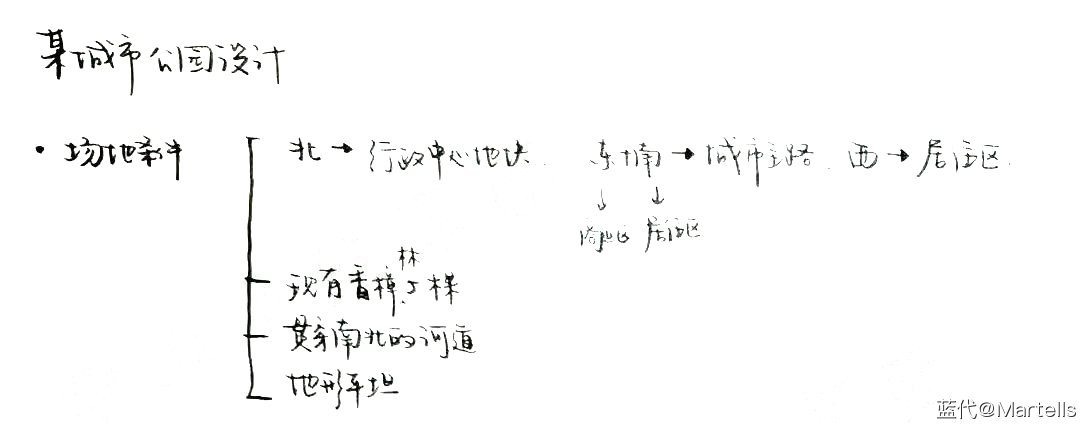 某城市公园设计
• 场地条件
北→行政中心地块 东+南→城市主路 西→居住区
↓ ↓
商业区 居住区
林
现有香樟5棵
贯穿南北的河道
地形平坦
蓝代@Martells